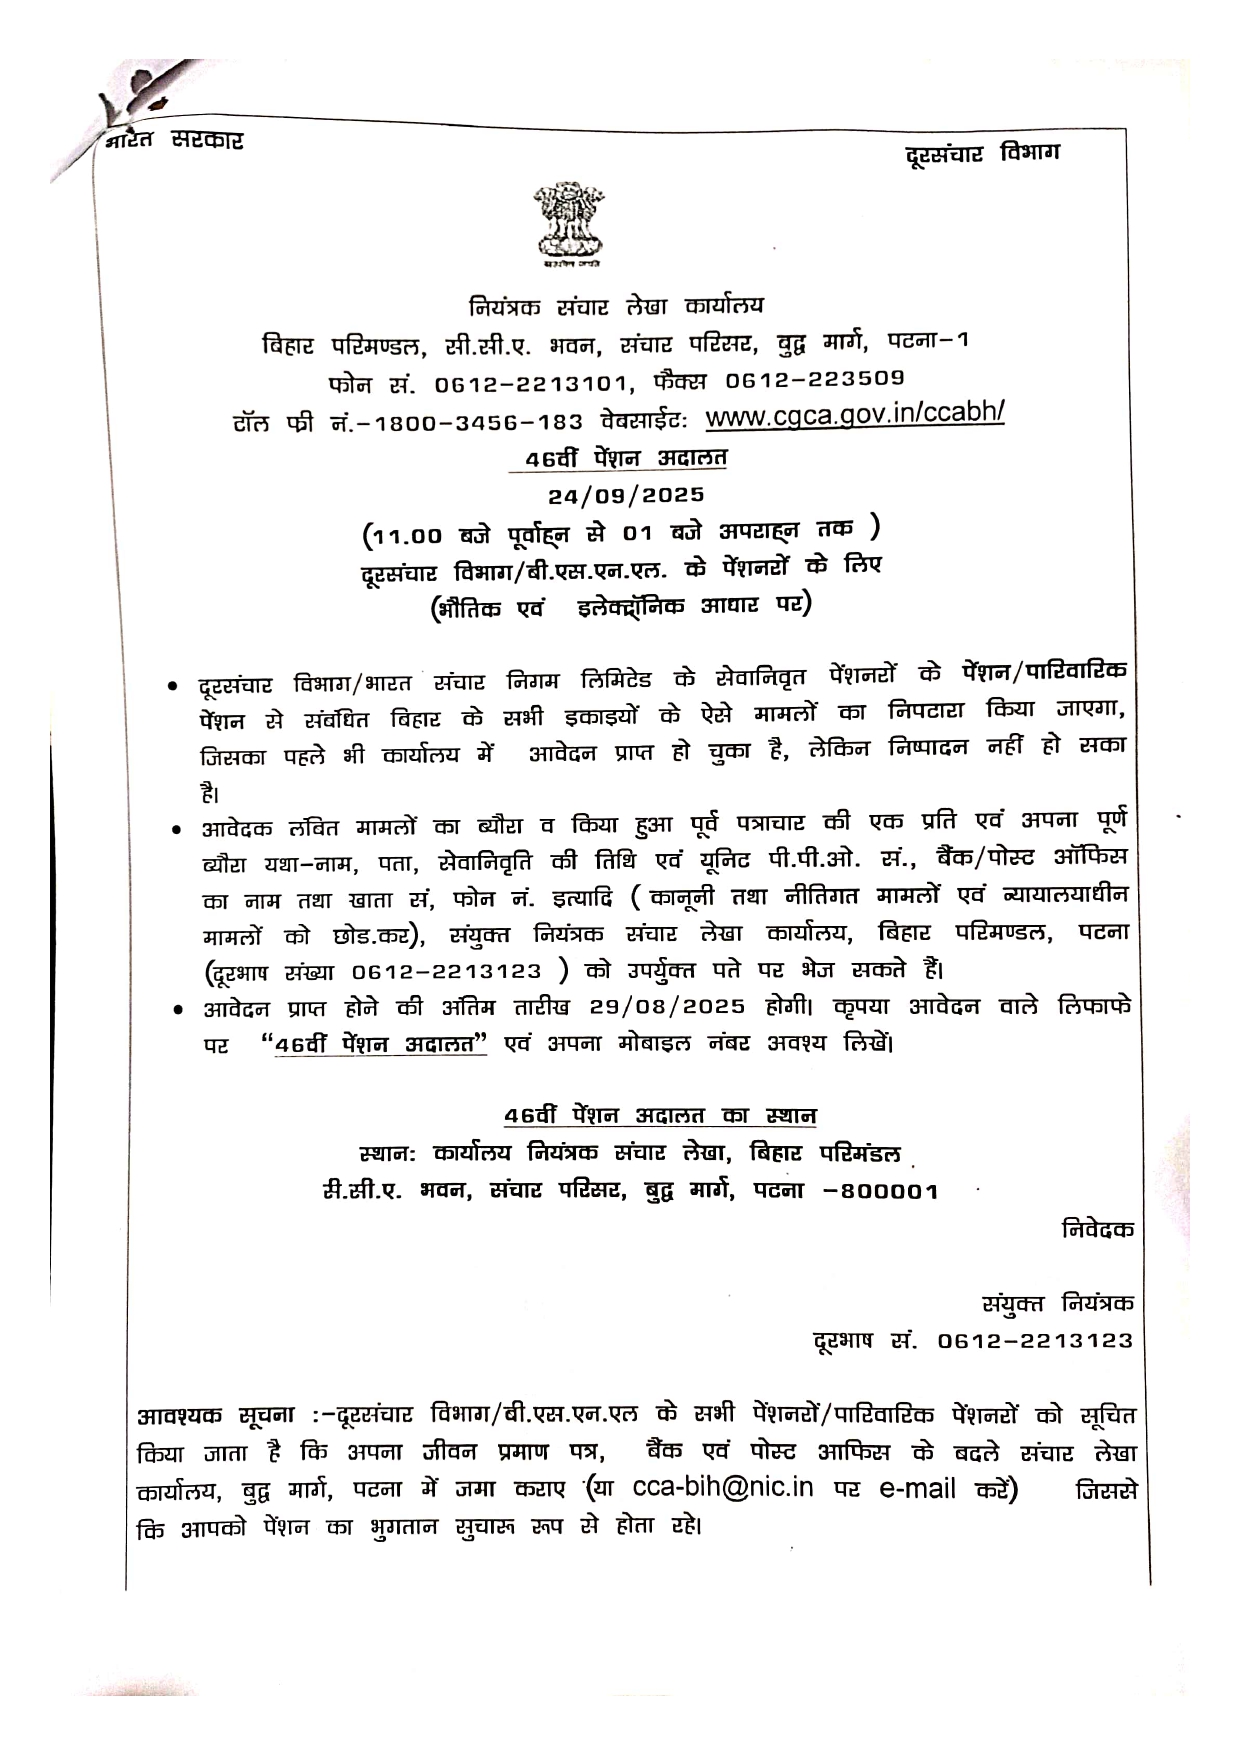 भारत सरकार
दूरसंचार विभाग
नियंत्रक संचार लेखा कार्यालय
बिहार परिमण्डल, सी.सी.ए. भवन, संचार परिसर, बुद्व मार्ग, पटना-1
फोन सं. 0612-2213101, फैक्स 0612-223509
टॉल फ्री नं.-1800-3456-183 वेबसाईट: www.cgca.gov.in/ccabh/
46वीं पेंशन अदालत
24/09/2025
(11.00 बजे पूर्वाह्न से 01 बजे अपराह्न तक )
दूरसंचार विभाग/बी.एस.एन.एल. के पेंशनरों के लिए
(भौतिक एवं इलेक्ट्रॉनिक आधार पर)
• दूरसंचार विभाग/भारत संचार निगम लिमिटेड के सेवानिवृत पेंशनरों के पेंशन/पारिवारिक
पेंशन से संबंधित बिहार के सभी इकाइयों के ऐसे मामलों का निपटारा किया जाएगा,
जिसका पहले भी कार्यालय में आवेदन प्राप्त हो चुका है, लेकिन निष्पादन नहीं हो सका
है।
• आवेदक लंबित मामलों का ब्यौरा व किया हुआ पूर्व पत्राचार की एक प्रति एवं अपना पूर्ण
ब्यौरा यथा-नाम, पता, सेवानिवृति की तिथि एवं यूनिट पी.पी.ओ. सं., बैंक/पोस्ट ऑफिस
का नाम तथा खाता सं, फोन नं. इत्यादि ( कानूनी तथा नीतिगत मामलों एवं न्यायालयाधीन
मामलों को छोड.कर), संयुक्त नियंत्रक संचार लेखा कार्यालय, बिहार परिमण्डल, पटना
(दूरभाष संख्या 0612-2213123 ) को उपर्युक्त पते पर भेज सकते हैं।
• आवेदन प्राप्त होने की अंतिम तारीख 29/08/2025 होगी। कृपया आवेदन वाले लिफाफे
पर “46वीं पेंशन अदालत” एवं अपना मोबाइल नंबर अवश्य लिखें।
46वीं पेंशन अदालत का स्थान
स्थान: कार्यालय नियंत्रक संचार लेखा, बिहार परिमंडल
सी.सी.ए. भवन, संचार परिसर, बुद्व मार्ग, पटना -800001
निवेदक
संयुक्त नियंत्रक
दूरभाष सं. 0612-2213123
आवश्यक सूचना :-दूरसंचार विभाग/बी.एस.एन.एल के सभी पेंशनरों/पारिवारिक पेंशनरों को सूचित
किया जाता है कि अपना जीवन प्रमाण पत्र, बैंक एवं पोस्ट आफिस के बदले संचार लेखा
कार्यालय, बुद्व मार्ग, पटना में जमा कराए (या cca-bih@nic.in पर e-mail करें) जिससे
कि आपको पेंशन का भुगतान सुचारू रूप से होता रहे।